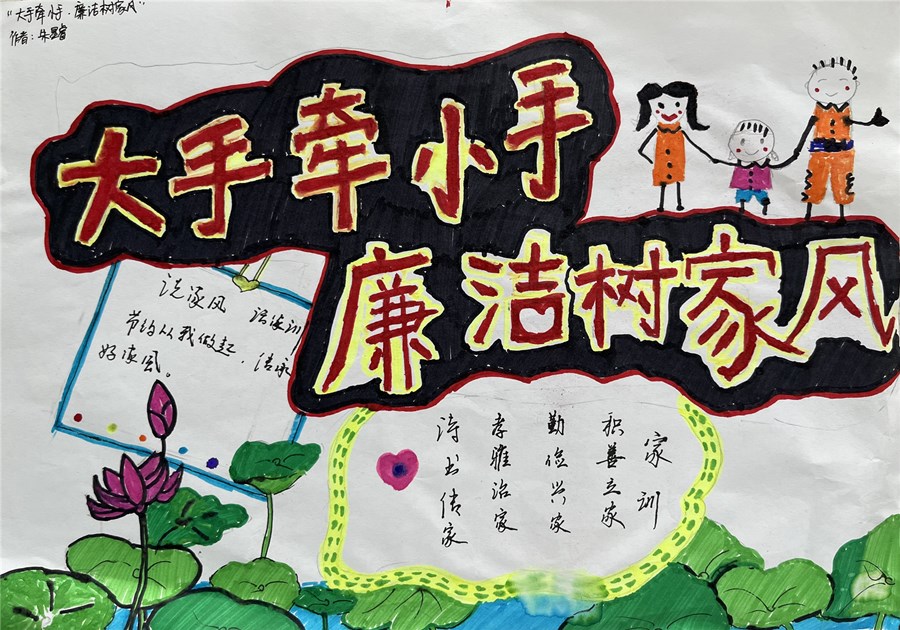 “大手牵小手·廉洁树家风”
作者：朱
大手牵小手
廉洁树家风
说家风 话家训
节约从我做起，传承
好家风。
家训
积善立家
勤俭兴家
孝雅治家
诗书传家